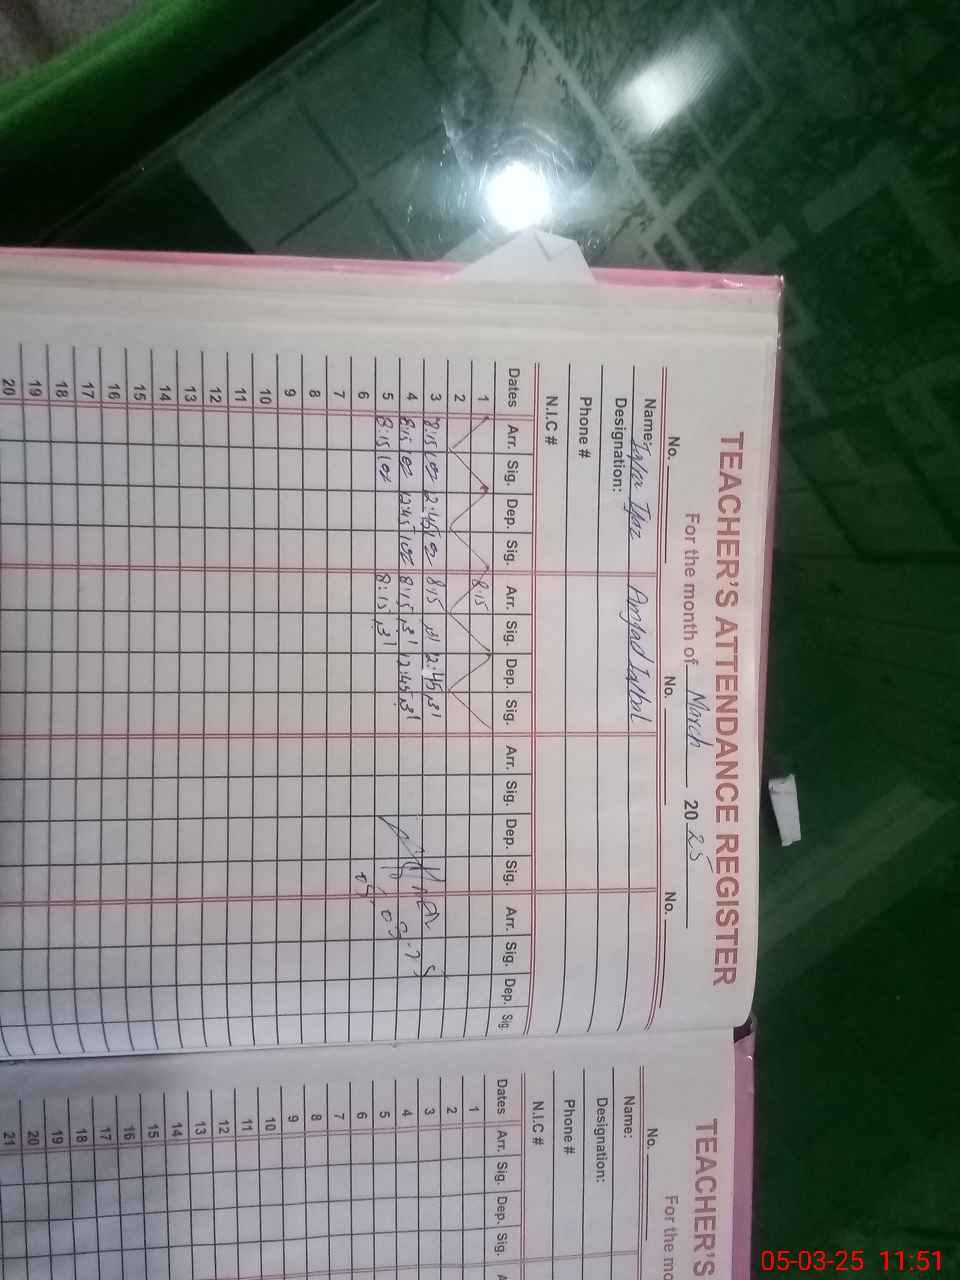 TEACHER'S ATTENDANCE REGISTER
For the month of March 2025
No. No. No.
Name: Amjad Iqbal
Designation:
Phone #
N.I.C #
Dates Arr. Sig. Dep. Sig. Arr. Sig. Dep. Sig. Arr. Sig. Dep. Sig. Arr. Sig. Dep. Sig.
1 8:15
2
3 8:15 2:45 8:15 2:45
4 8:15 12:45 8:15 12:45
5 8:15 8:15
6
7
8
9
10
11
12
13
14
15
16
17
18
19
20
TEACHER'S
For the mo
No.
Name:
Designation:
Phone #
N.I.C #
Dates Arr. Sig. Dep. Sig. A
1
2
3
4
5
6
7
8
9
10
11
12
13
14
15
16
17
18
19
20
21
05-03-25 11:51